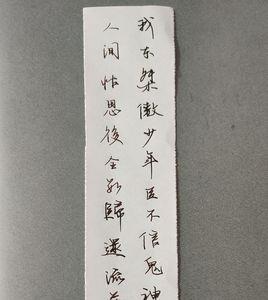 我本桀傲少年臣不信鬼神
人间後全歸還流